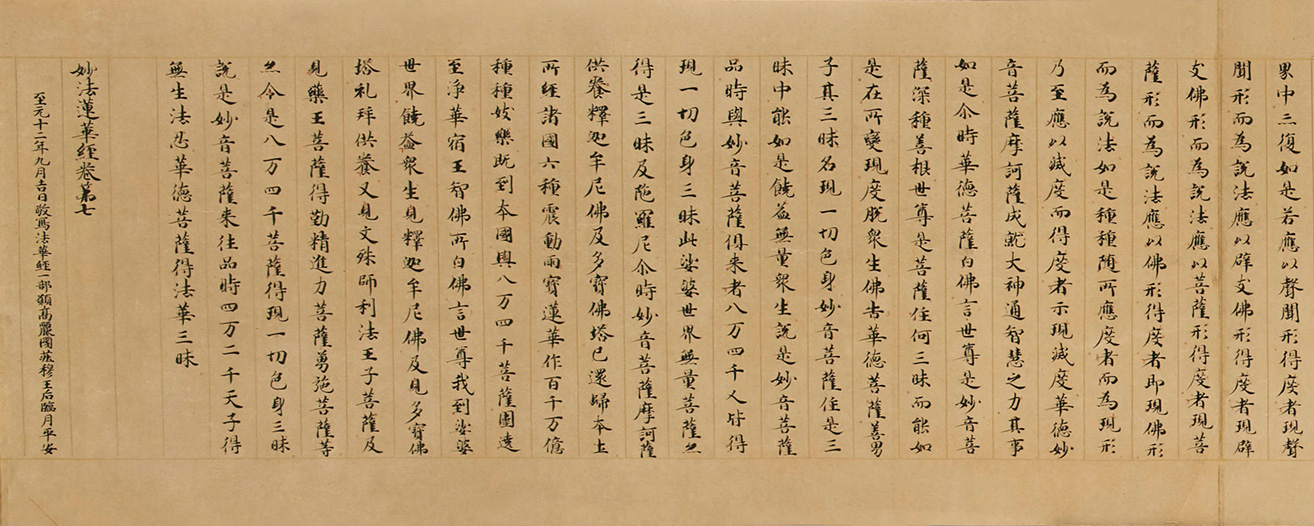 界中亦復如是若應以聲聞形得度者現聲
聞形而為說法應以辟支佛形得度者現辟
支佛形而為說法應以菩薩形得度者現菩
薩形而為說法應以佛形得度者即現佛形
而為說法如是種種隨所應度者而為現形
乃至應以滅度而得度者示現滅度華德妙
音菩薩摩訶薩成就大神通智慧之力其事
如是尒時華德菩薩白佛言世尊是妙音菩
薩深種善根世尊是菩薩住何三昧而能如
是在所變現度脫眾生佛告華德菩薩善男
子其三昧名現一切色身妙音菩薩住是三
昧中能如是饒益無量眾生說是妙音菩薩
品時與妙音菩薩俱來者八万四千人皆得
現一切色身三昧此娑婆世界無量菩薩亦
得是三昧及陁羅尼尒時妙音菩薩摩訶薩
供養釋迦牟尼佛及多寶佛塔已還歸本土
所經諸國六種震動雨寶蓮華作百千万億
種種妓樂既到本國與八万四千菩薩圍遶
至淨華宿王智佛所白佛言世尊我到娑婆
世界饒益眾生見釋迦牟尼佛及見多寶佛
塔礼拜供養又見文殊師利法王子菩薩及
見藥王菩薩得勤精進力菩薩勇施菩薩等
亦令是八万四千菩薩得現一切色身三昧
說是妙音菩薩来往品時四万二千天子得
無生法忍華德菩薩得法華三昧
妙法蓮華經卷第七
至元十二年九月吉日敬寫法華經一部願高麗國莊穆王后臨月平安